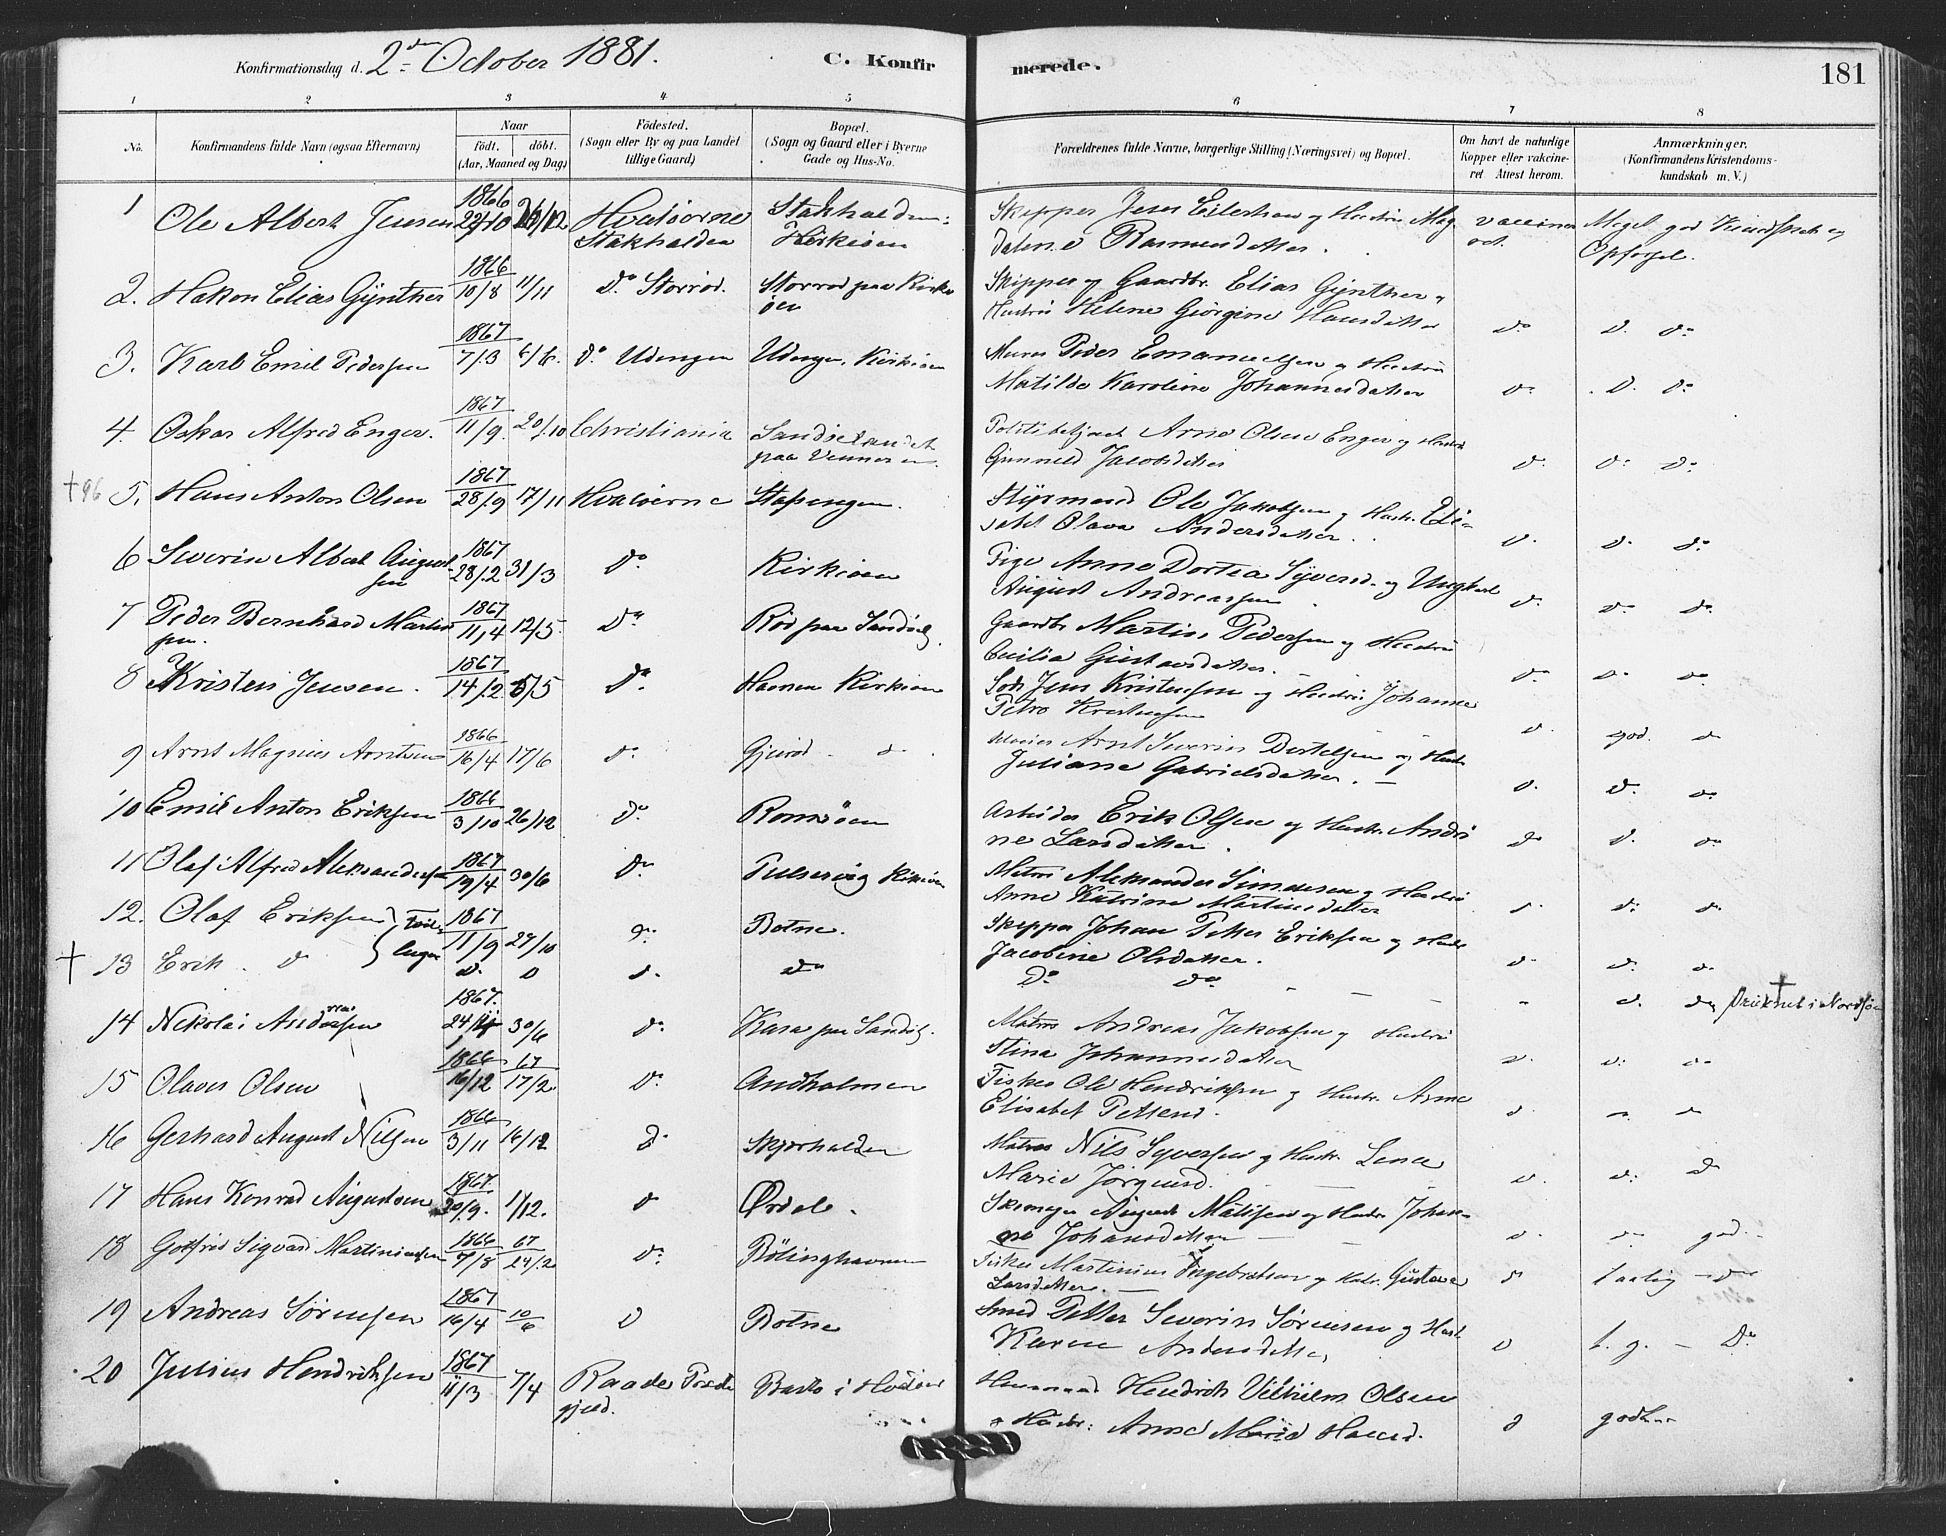 Konfirmationsdag d. 2den October 1881. C. Konfirmerede. 181
1 2 3 4 5 6 7 8
No. Konfirmandens fulde Navn (ogsaa Efternavn) Naar födt. döbt. (Aar, Maaned og Dag) Födested. (Sogn eller By og paa Landet tillige Gaard) Bopæl. (Sogn og Gaard eller i Byerne Gade og Hus-No. Forældrenes fulde Navne, borgerlige Stilling (Næringsvei) og Bopæl. Om havt de naturlige Kopper eller vakcineret. Attest herom. Anmærkninger. (Konfirmandens Kristendomskundskab m. V.)
1 Ole Albert Jensen 1866 22/10 26/12 Hvalöerne Stakhalden Kirkiöen Skipper Jens og Hustru Magdalene Rasmusdatter. Meget god Kundskab og Opförsel.
2. Hakon Elias Gÿnther 1866 10/8 11/11 do Storröd. Storröd paa Kirkeöen Skipper og Gaardbr. Elias Gÿnther og Hustru Helene Georgine Hansdatter do d. do
3. Karl Emil Pedersen 1867 7/3 6/6. do Udengen Udengen, Kirkiöen Murer Peder Emanuelsen og Hustru Matilde Karoline Johannesdatter do. d. do
4. Oskar Alfred Enger. 1867 11/9. 20/10 Christiania Sandöelandet paa Arne Olsen Enger og Hustru Gunneld Jacobsdatter d. d. d.
†96 5. Hans Anton Olsen 1867 28/9 17/11 Hvalöerne Styrmand Ole Jakobsen og Hustr. Elisabet Olava Andersdatter. d. d. d.
6 Severin Albert Augustsen 1867 28/2 31/3 do Kirkiöen Pige Anne Dortea Syversd. og Ungkarl August Andreassen d. d. d.
7 Peder Bernhard Martinsen. 1867 11/4 12/5. do Röd paa Sandöel. Gaardbr Martin Pedersen og Hustru Cecilia Gustavsdatter. d. d. d.
8 Kristen Jensen. 1867 14/2 5/5 do. Havnen Kirkiöen Jens Kristensen og Hustru Johanne Petra Kristensen d. god. d
9 Arnt Magnus Arntsen 1866 16/4 17/6 d. Gjuröd. d. Arnt Severin Bertelsen og Hustr Juliane Gabrielsdatter. d. d. d.
10 Emil Anton Eriksen 1866 3/10 26/12 d. Romsöen Arbeider Erik Olsen og Hustr. Andrine Larsdatter. do d. do
11 Olaf Alfred Aleksandersen 1867 19/4 30/6 d. Kirkiöen Matros Aleksander Simensen og Hustru Anne Katrine Martinsdatter d. d. d.
12. Olaf Eriksen } Tvillinger 1867 11/9 27/10 d. Botne. Skipper Johan Petter Eriksen og Hustr Jacobine Olsdatter. d. d. d.
† 13 Erik. d d. d d. do do do d. do † Druknet i Nordsöen
14 Nikolai Andreassen 1867. 24/4 30/6 d. Kasa paa Sandöl. Matros Andreas Jakobsen og Hustru Stina Johannesdatter d. d. d.
15 Olaves Olsen 1866 16/12 67 17/2 d. Andholmen Fisker Ole Hendriksen og Hustr. Anne Elisabet Pettersd. d d
16 Gerhard August Nilsen 1866 3/11 16/12 d. Skjærhalden Matros Nils Syversen og Hustr. Lena Marie Jörgensd. d. d. d
17 Hans Konrad Augustsen 1867 20/9. 1/12. d Ørdele. August Matisen og Hustr. Johanne Johansdatter d. d. god.
18 Gotfred Sigvard Martiniussen 1866 7/8 67 24/2 d. Bölinghavnen Fisker Martinius Ingebretsen og Hustr. Gustava Larsdatter. d taalig - do
19 Andreas Sörensen 1867 16/4 10/6 d Botne Smed Petter Severin Sörensen og Hust. Karen Andersdatter d t. g. - do
20 Julius Hendriksen 1867 11/3 7/4 Raade Præstegjeld. Basto i Hvalöer Husmand Hendrik Vilhelm Olsen og Hustr: Anne Maria Hansd. d god